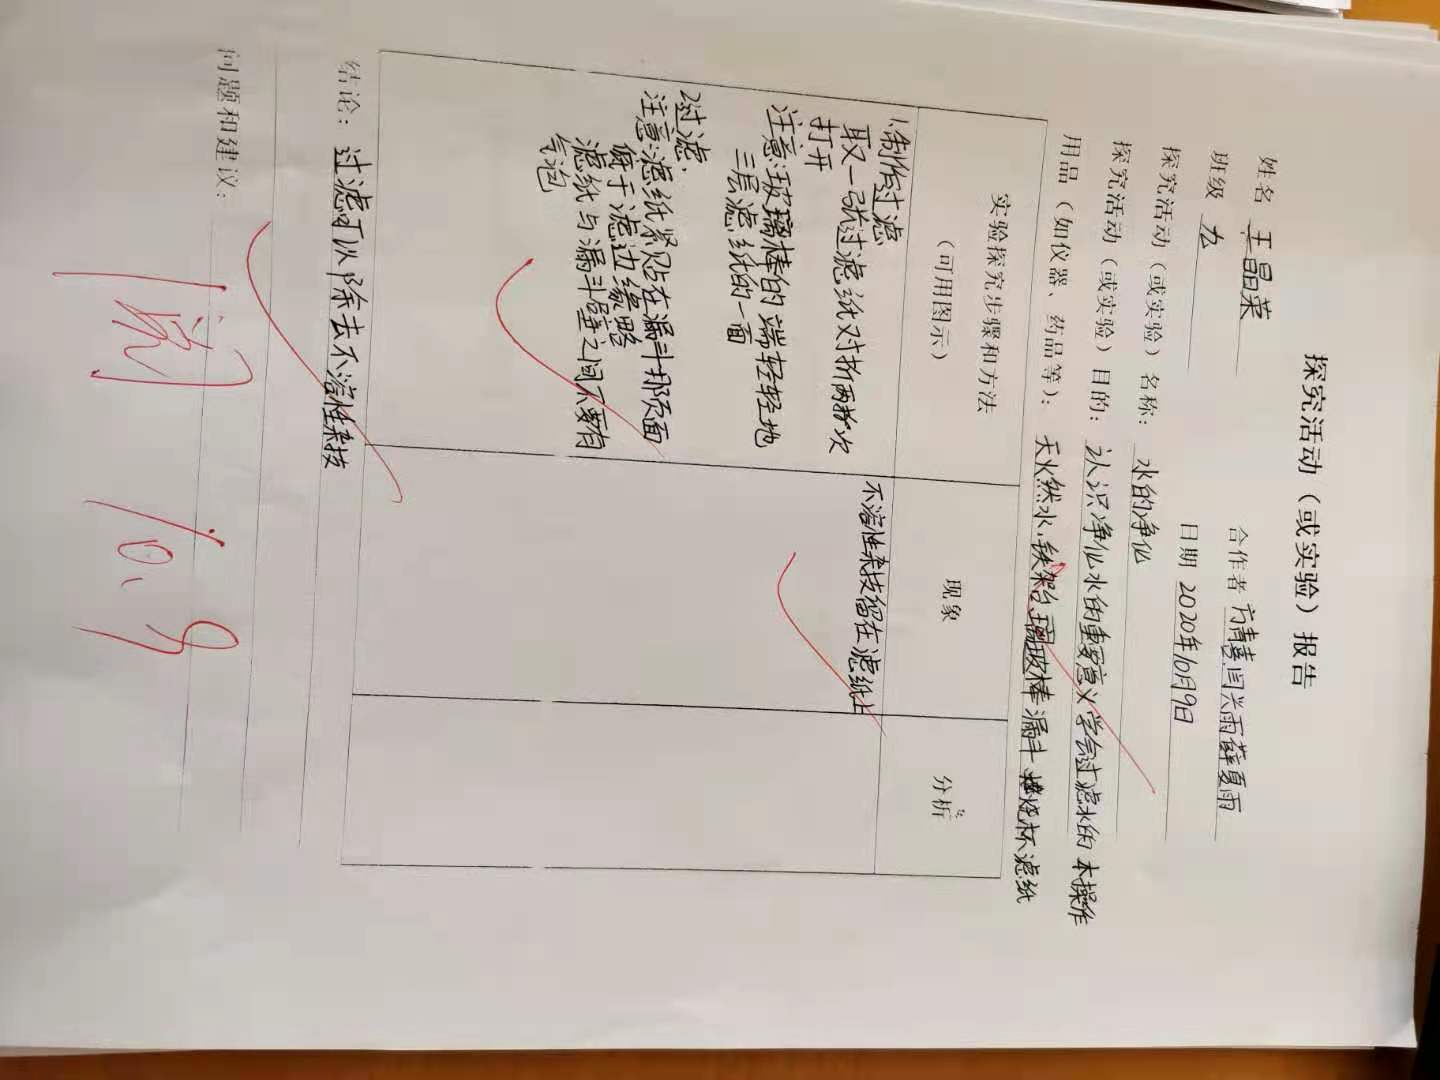 探究活动（或实验）报告
姓名 王晶荣 合作者 方青熹 闫兴雨 薛夏雨
班级 九 日期 2020年10月9日
探究活动（或实验）名称： 水的净化
探究活动（或实验）目的： 认识净化水的重要意义 学会过滤水的 本操作
用品（如仪器、药品等）： 天然水、铁架台 玻棒 漏斗 烧杯 滤纸
实验探究步骤和方法
（可用图示）
现象
分析
1、制作过滤
取一张过滤纸对折两次
打开
注意：玻璃棒的 端轻轻地
三层滤纸的一面
2过滤．
注意：滤纸紧贴在漏斗那页面
滤边缘略
滤纸与漏斗壁之间不要有
气泡
不溶性杂技留在滤纸上
结论： 过滤可以除去不溶性杂技
问题和建议：
阅
10、9